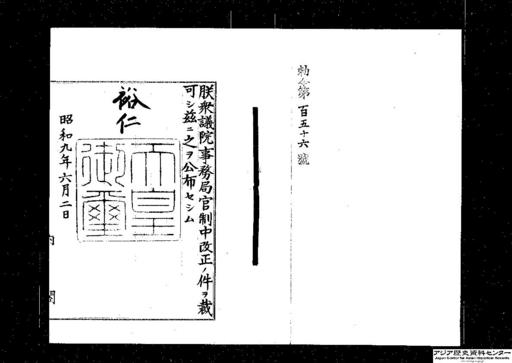 勅令第百五十六號
朕衆議院事務局官制中改正ノ件ヲ裁
可シ茲ニ之ヲ公布セシム
裕仁
天皇御璽
昭和九年六月二日
内閣
アジア歴史資料センター
Japan Center for Asian Historical Records